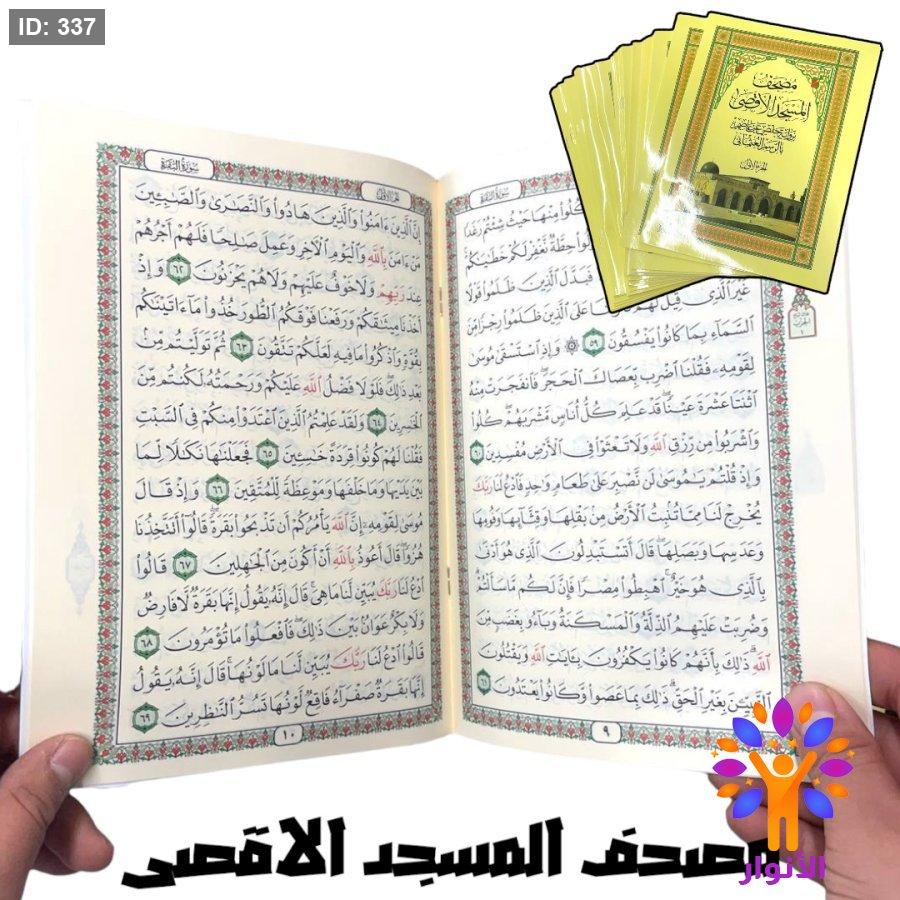 ID: 337
مصحف
المسجد الأقصى
برواية حفص عن عاصم
بالرسم العثماني
الجزء الأول
سورة البقرة
كُلُوا۟ مِنْهَا حَيْثُ شِئْتُمْ رَغَدًا
حِطَّةٌ نَّغْفِرْ لَكُمْ خَطَٰيَٰكُمْ
فَبَدَّلَ ٱلَّذِينَ ظَلَمُوا۟ قَوْلًا
غَيْرَ ٱلَّذِى قِيلَ لَهُمْ عَلَى ٱلَّذِينَ ظَلَمُوا۟ رِجْزًا مِّنَ
ٱلسَّمَآءِ بِمَا كَانُوا۟ يَفْسُقُونَ ٥٩ ۞ وَإِذِ ٱسْتَسْقَىٰ مُوسَىٰ
لِقَوْمِهِۦ فَقُلْنَا ٱضْرِب بِّعَصَاكَ ٱلْحَجَرَ ۖ فَٱنفَجَرَتْ مِنْهُ
ٱثْنَتَا عَشْرَةَ عَيْنًا ۖ قَدْ عَلِمَ كُلُّ أُنَاسٍ مَّشْرَبَهُمْ ۖ كُلُوا۟
وَٱشْرَبُوا۟ مِن رِّزْقِ ٱللَّهِ وَلَا تَعْثَوْا۟ فِى ٱلْأَرْضِ مُفْسِدِينَ ٦٠
وَإِذْ قُلْتُمْ يَٰمُوسَىٰ لَن نَّصْبِرَ عَلَىٰ طَعَامٍ وَٰحِدٍ فَٱدْعُ لَنَا رَبَّكَ
يُخْرِجْ لَنَا مِمَّا تُنۢبِتُ ٱلْأَرْضُ مِنۢ بَقْلِهَا وَقِثَّآئِهَا وَفُومِهَا
وَعَدَسِهَا وَبَصَلِهَا ۖ قَالَ أَتَسْتَبْدِلُونَ ٱلَّذِى هُوَ أَدْنَىٰ
بِٱلَّذِى هُوَ خَيْرٌ ۚ ٱهْبِطُوا۟ مِصْرًا فَإِنَّ لَكُم مَّا سَأَلْتُمْ ۗ
وَضُرِبَتْ عَلَيْهِمُ ٱلذِّلَّةُ وَٱلْمَسْكَنَةُ وَبَآءُو بِغَضَبٍ مِّنَ
ٱللَّهِ ۗ ذَٰلِكَ بِأَنَّهُمْ كَانُوا۟ يَكْفُرُونَ بِـَٔايَٰتِ ٱللَّهِ وَيَقْتُلُونَ
ٱلنَّبِيِّـۧنَ بِغَيْرِ ٱلْحَقِّ ۗ ذَٰلِكَ بِمَا عَصَوا۟ وَّكَانُوا۟ يَعْتَدُونَ ٦١
٩
الجزء الأول
سورة البقرة
إِنَّ ٱلَّذِينَ ءَامَنُوا۟ وَٱلَّذِينَ هَادُوا۟ وَٱلنَّصَٰرَىٰ وَٱلصَّٰبِـِٔينَ
مَنْ ءَامَنَ بِٱللَّهِ وَٱلْيَوْمِ ٱلْءَاخِرِ وَعَمِلَ صَٰلِحًا فَلَهُمْ أَجْرُهُمْ
عِندَ رَبِّهِمْ وَلَا خَوْفٌ عَلَيْهِمْ وَلَا هُمْ يَحْزَنُونَ ٦٢ وَإِذْ
أَخَذْنَا مِيثَٰقَكُمْ وَرَفَعْنَا فَوْقَكُمُ ٱلطُّورَ خُذُوا۟ مَآ ءَاتَيْنَٰكُم
بِقُوَّةٍ وَٱذْكُرُوا۟ مَا فِيهِ لَعَلَّكُمْ تَتَّقُونَ ٦٣ ثُمَّ تَوَلَّيْتُم مِّنۢ
بَعْدِ ذَٰلِكَ ۖ فَلَوْلَا فَضْلُ ٱللَّهِ عَلَيْكُمْ وَرَحْمَتُهُۥ لَكُنتُم مِّنَ
ٱلْخَٰسِرِينَ ٦٤ وَلَقَدْ عَلِمْتُمُ ٱلَّذِينَ ٱعْتَدَوْا۟ مِنكُمْ فِى ٱلسَّبْتِ
فَقُلْنَا لَهُمْ كُونُوا۟ قِرَدَةً خَٰسِـِٔينَ ٦٥ فَجَعَلْنَٰهَا نَكَٰلًا لِّمَا
بَيْنَ يَدَيْهَا وَمَا خَلْفَهَا وَمَوْعِظَةً لِّلْمُتَّقِينَ ٦٦ وَإِذْ قَالَ
مُوسَىٰ لِقَوْمِهِۦٓ إِنَّ ٱللَّهَ يَأْمُرُكُمْ أَن تَذْبَحُوا۟ بَقَرَةً ۖ قَالُوٓا۟ أَتَتَّخِذُنَا
هُزُوًا ۖ قَالَ أَعُوذُ بِٱللَّهِ أَنْ أَكُونَ مِنَ ٱلْجَٰهِلِينَ ٦٧ قَالُوا۟
ٱدْعُ لَنَا رَبَّكَ يُبَيِّن لَّنَا مَا هِىَ ۚ قَالَ إِنَّهُۥ يَقُولُ إِنَّهَا بَقَرَةٌ لَّا فَارِضٌ
وَلَا بِكْرٌ عَوَانٌۢ بَيْنَ ذَٰلِكَ ۖ فَٱفْعَلُوا۟ مَا تُؤْمَرُونَ ٦٨
قَالُوا۟ ٱدْعُ لَنَا رَبَّكَ يُبَيِّن لَّنَا مَا لَوْنُهَا ۚ قَالَ إِنَّهُۥ يَقُولُ
إِنَّهَا بَقَرَةٌ صَفْرَآءُ فَاقِعٌ لَّوْنُهَا تَسُرُّ ٱلنَّٰظِرِينَ ٦٩
١٠
مصحف المسجد الاقصى
الأنوار